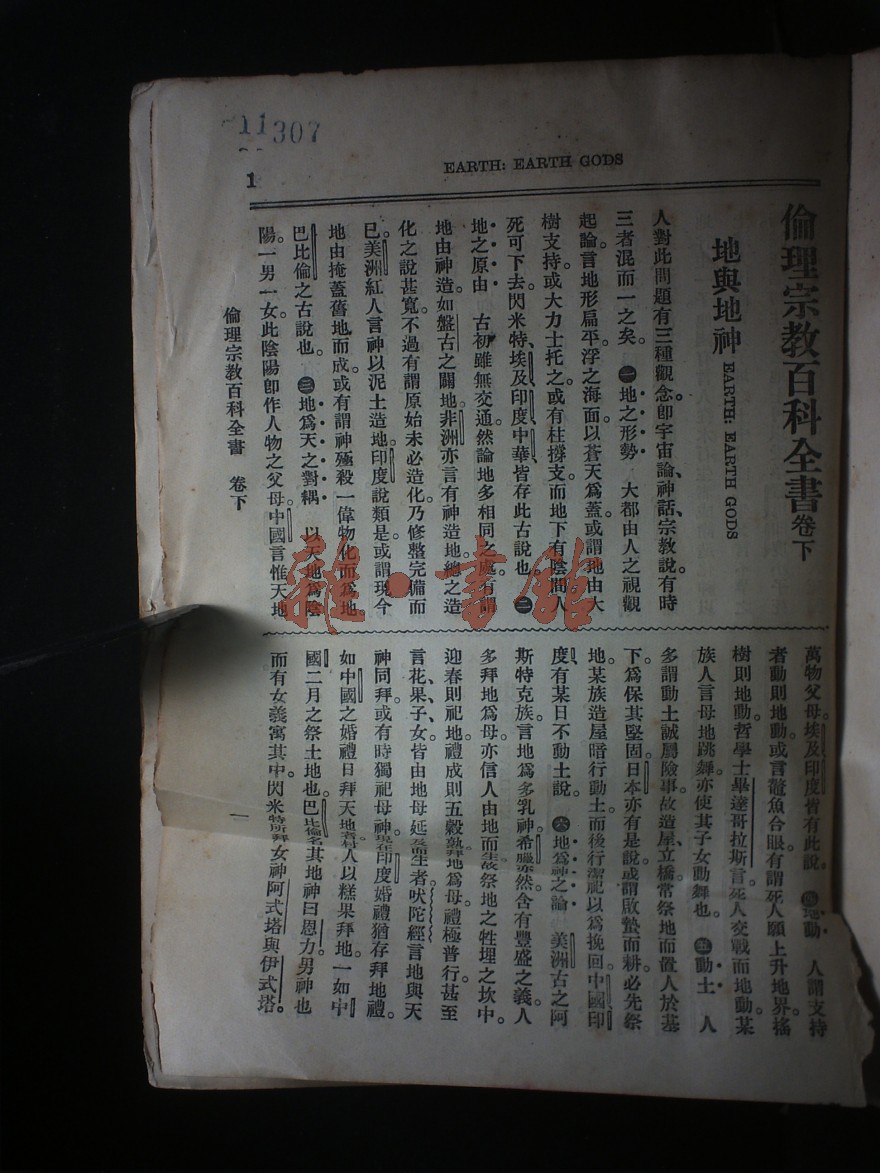 11307
1
EARTH: EARTH GODS
倫理宗教百科全書 卷下
地與地神 EARTH: EARTH GODS
人對此問題有三種觀念。卽宇宙論、神話、宗教說。有時
三者混而一之矣。㊀地之形勢 大都由人之視觀
起論。言地形扁平。浮之海面。以蒼天爲蓋。或謂地由大
樹支持。或大力士托之。或有柱撐支。而地下有陰間。人
死可下去。閃米特、埃及、印度、中華、皆存此古說也。㊁
地之原由 古初雖無交通。然論地多相同之處。有謂
地由神造。如盤古之闢地。非洲亦言有神造地。總之造
化之說甚寬。不過有謂原始未必造化。乃修整完備而
已。美洲紅人言神以泥土造地。印度說類是。或謂現今
地由掩蓋舊地而成。或有謂神殛殺一偉物。化而爲地。
巴比倫之古說也。㊂地爲天之對耦 以天地爲陰
陽。一男一女。此陰陽卽作人物之父母。中國言惟天地
倫理宗教百科全書 卷下
萬物父母。埃及印度皆有此說。㊃地動 人謂支持
者動則地動。或言鼇魚合眼。有謂死人願上升地界。搖
樹則地動。哲學士畢達哥拉斯言。死人交戰而地動。某
族人言母地跳舞。亦使其子女動舞也。㊄動土 人
多謂動土誠屬險事。故造屋、立橋、常祭地而置人於基
下。爲保其堅固。日本亦有是說。或謂啟蟄而耕。必先祭
地。某族造屋暗行動土。而後行潔祀以爲挽回。中國印
度有某日不動土說。㊅地爲神之論 美洲古之阿
斯特克族。言地爲多乳神。希臘亦然。含有豐盛之義。人
多拜地爲母。亦信人由地而生。故祭地之牲埋之坎中。
迎春則祀地。禮成則五穀熟。拜地爲母。禮極普行。甚至
言花、果、子、女、皆由地母延及而生者。吠陀經言地與天
神同拜。或有時獨祀母神。現在印度婚禮猶存拜地禮。
如中國之婚禮日拜天地者。村人以糕果拜地。一如中
國二月之祭土地也。巴比倫名其地神曰恩力。男神也
而有女義寓其中。閃米特所拜女神阿式塔與伊式塔。
一
雜·書館